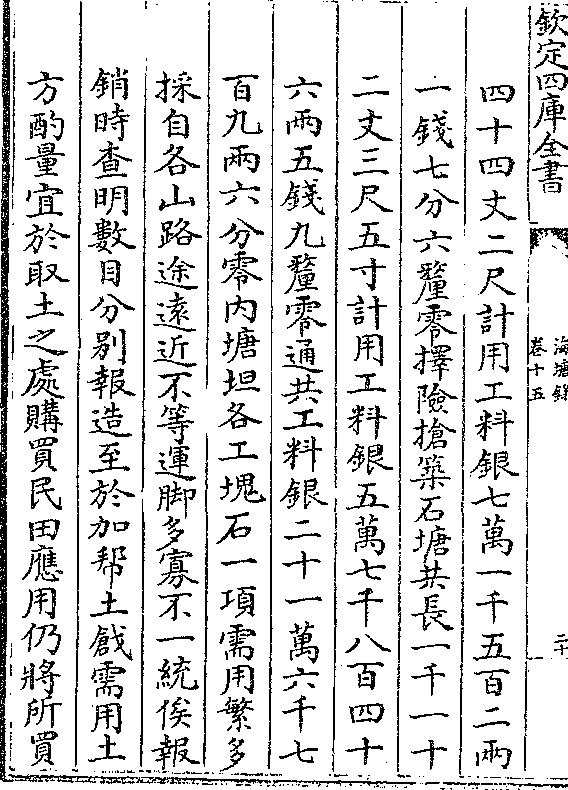 欽定四庫全書
海塘錄
卷十五
四十四丈二尺計用工料銀七萬一千五百二兩
一錢七分六釐零擇險搶築石塘共長一千一十
二丈三尺五寸計用工料銀五萬七千八百四十
六兩五錢九釐零通共工料銀二十一萬六千七
百九兩六分零內塘坦各工塊石一項需用繁多
採自各山路途遠近不等運脚多寡不一統俟報
銷時查明數目分別報造至於加帮土戧需用土
方酌量宜於取土之處購買民田應用仍將所買